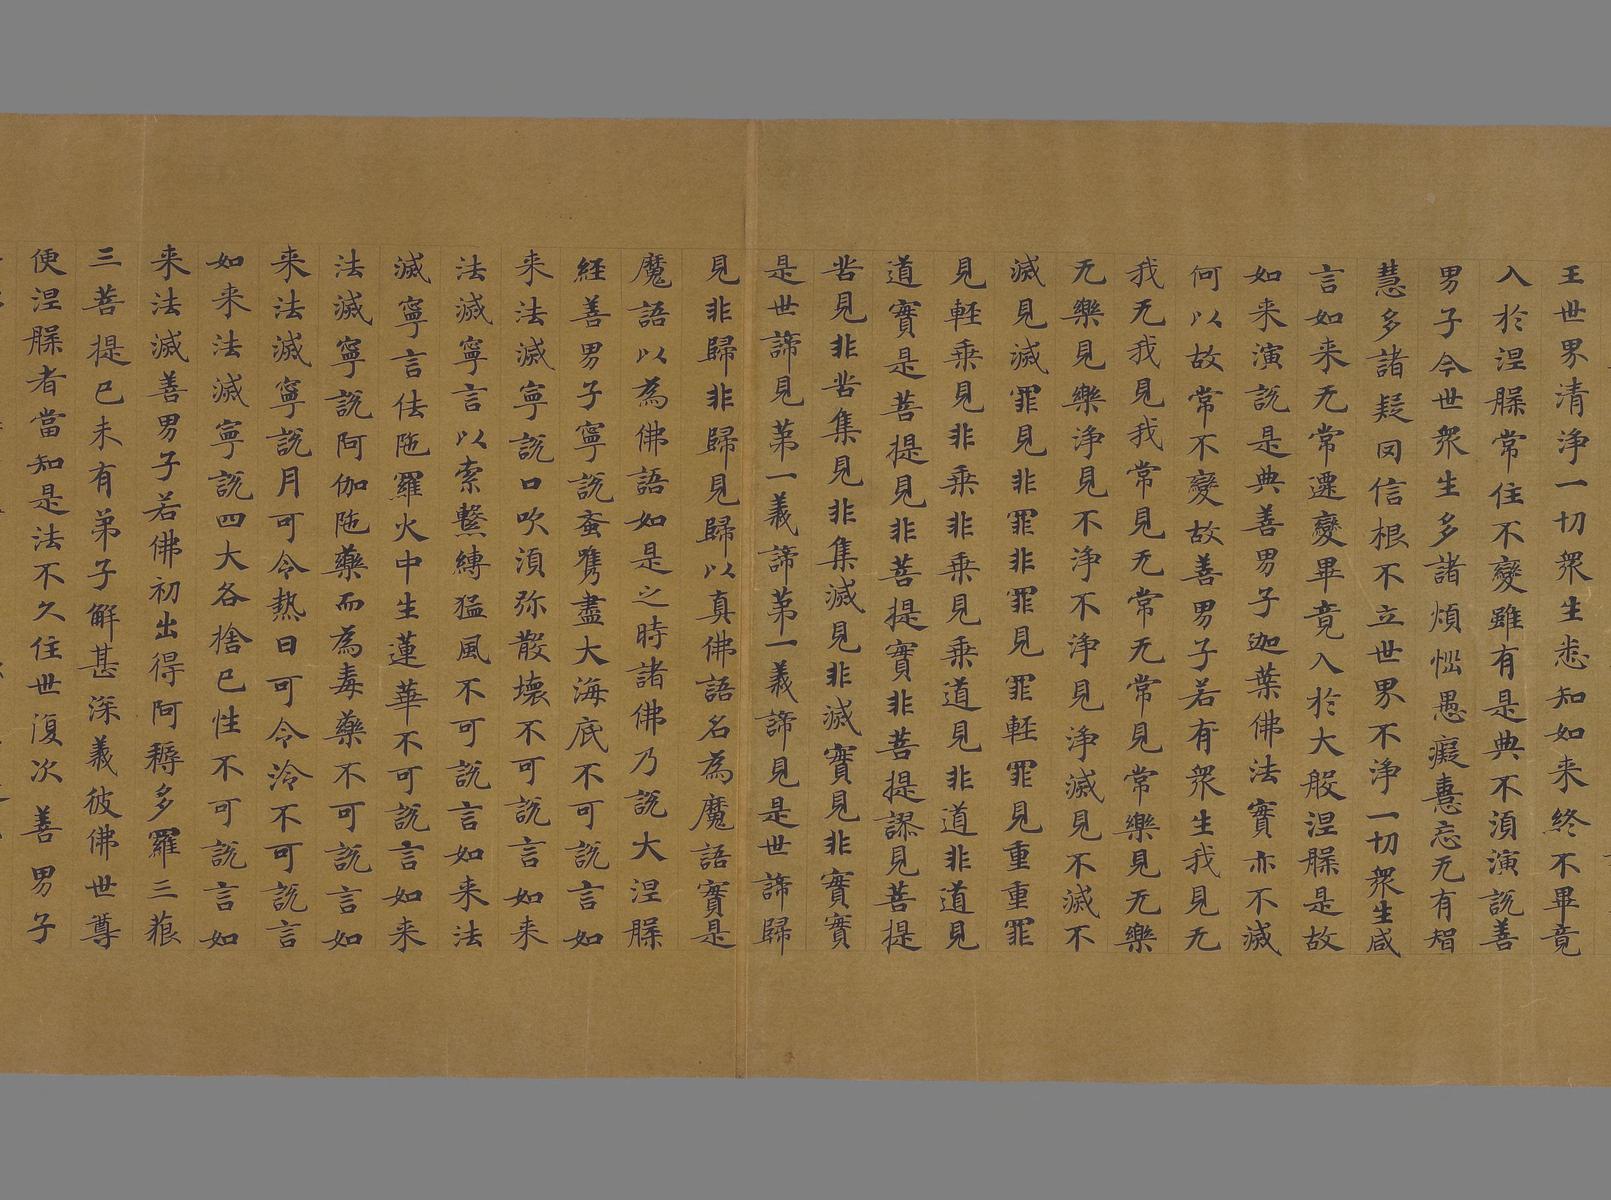 王世界清浄一切衆生悉知如来終不畢竟
入於涅槃常住不變雖有是典不湏演説善
男子今世衆生多諸煩惱愚癡憙忘无有智
慧多諸疑罔信根不立世界不浄一切衆生咸
言如来无常遷變畢竟入於大般涅槃是故
如来演説是典善男子迦葉佛法實亦不滅
何以故常不變故善男子若有衆生我見无
我无我見我常見无常无常見常樂見无樂
无樂見樂浄見不浄不浄見浄滅見不滅不
滅見滅罪見非罪非罪見罪軽罪見重重罪
見軽乗見非乗非乗見乗道見非道非道見
道實是菩提見非菩提實非菩提謬見菩提
苦見非苦集見非集滅見非滅實見非實實
是世諦見第一義諦第一義諦見是世諦歸
見非歸非歸見歸以真佛語名為魔語實是
魔語以為佛語如是之時諸佛乃説大涅槃
経善男子寧説蚉㭰盡大海底不可説言如
来法滅寧説口吹湏弥散壊不可説言如来
法滅寧言以索繫縛猛風不可説言如来法
滅寧言佉陁羅火中生蓮華不可説言如来
法滅寧説阿伽陁藥而為毒藥不可説言如
来法滅寧説月可令熱日可令冷不可説言
如来法滅寧説四大各捨己性不可説言如
来法滅善男子若佛初出得阿耨多羅三藐
三菩提已未有弟子解甚深義彼佛世尊
便涅槃者當知是法不久住世復次善男子